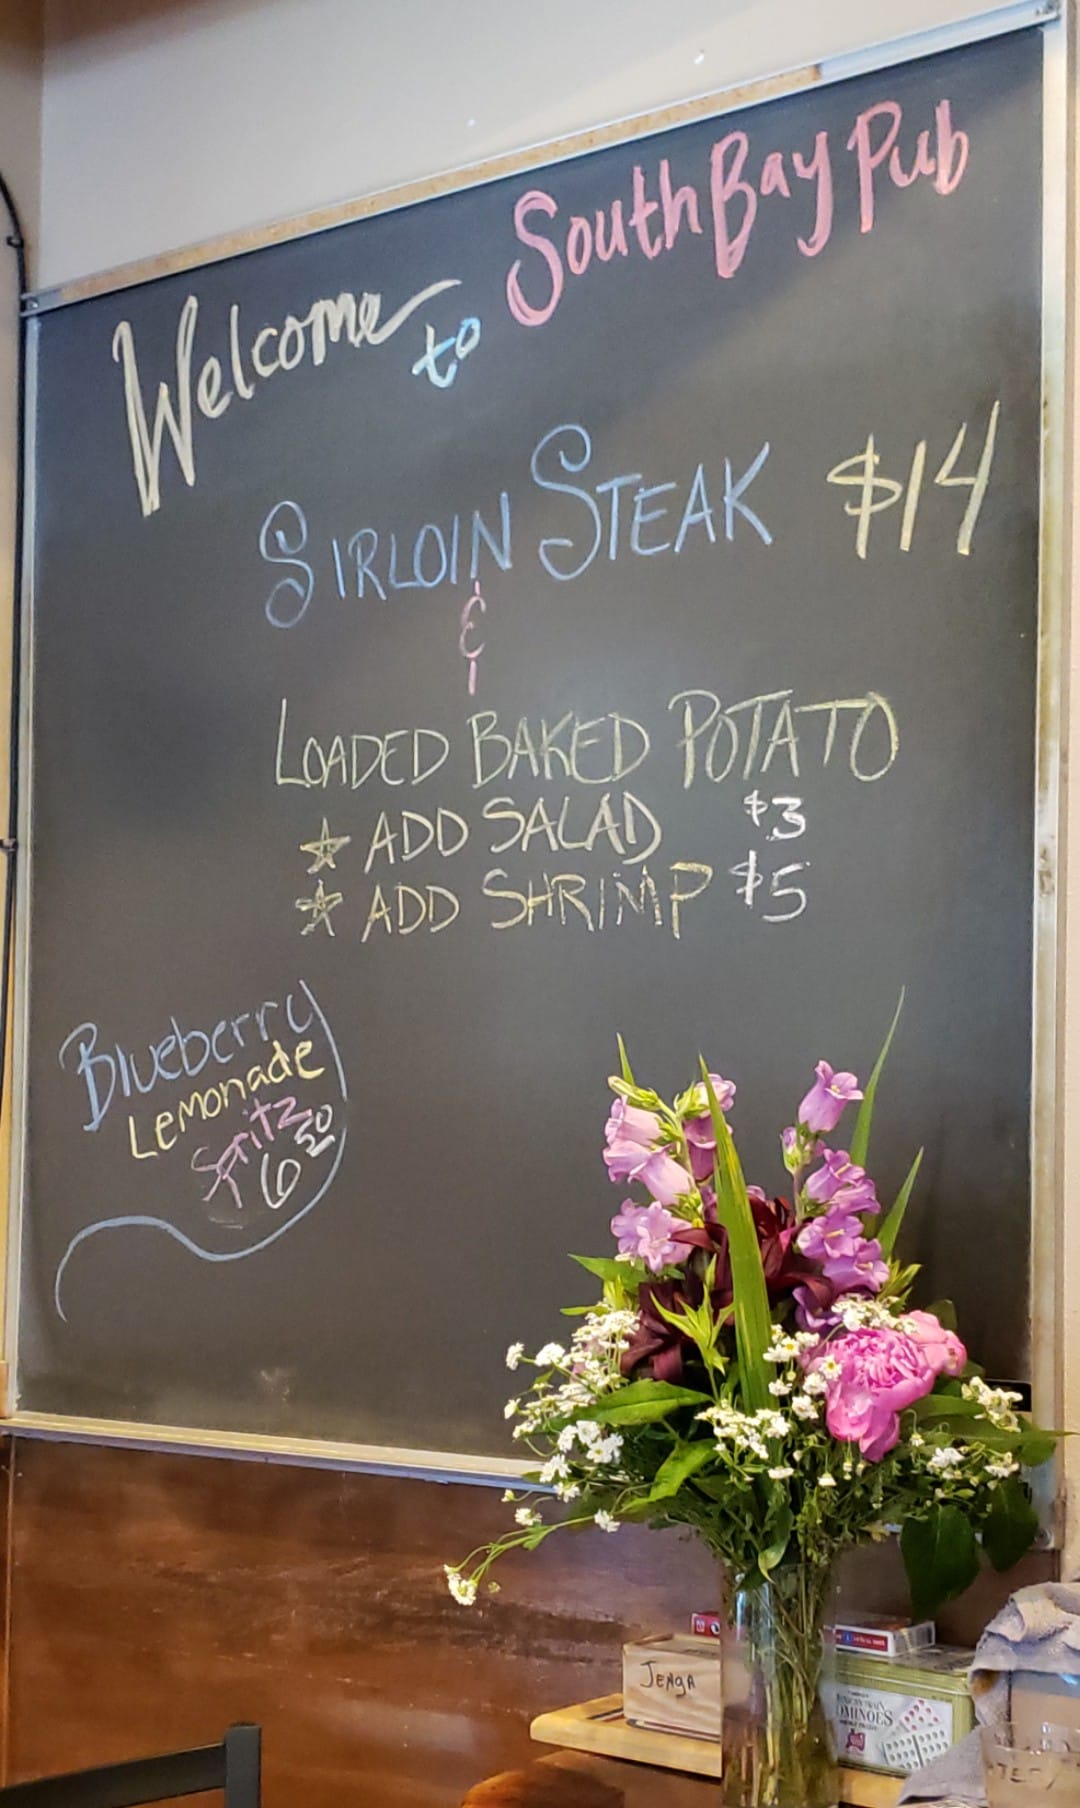 Welcome to South Bay Pub
SIRLOIN STEAK $14
&
LOADED BAKED POTATO
☆ ADD SALAD $3
☆ ADD SHRIMP $5
Blueberry
Lemonade
Spritz
6 50
JENGA
DOMINOES